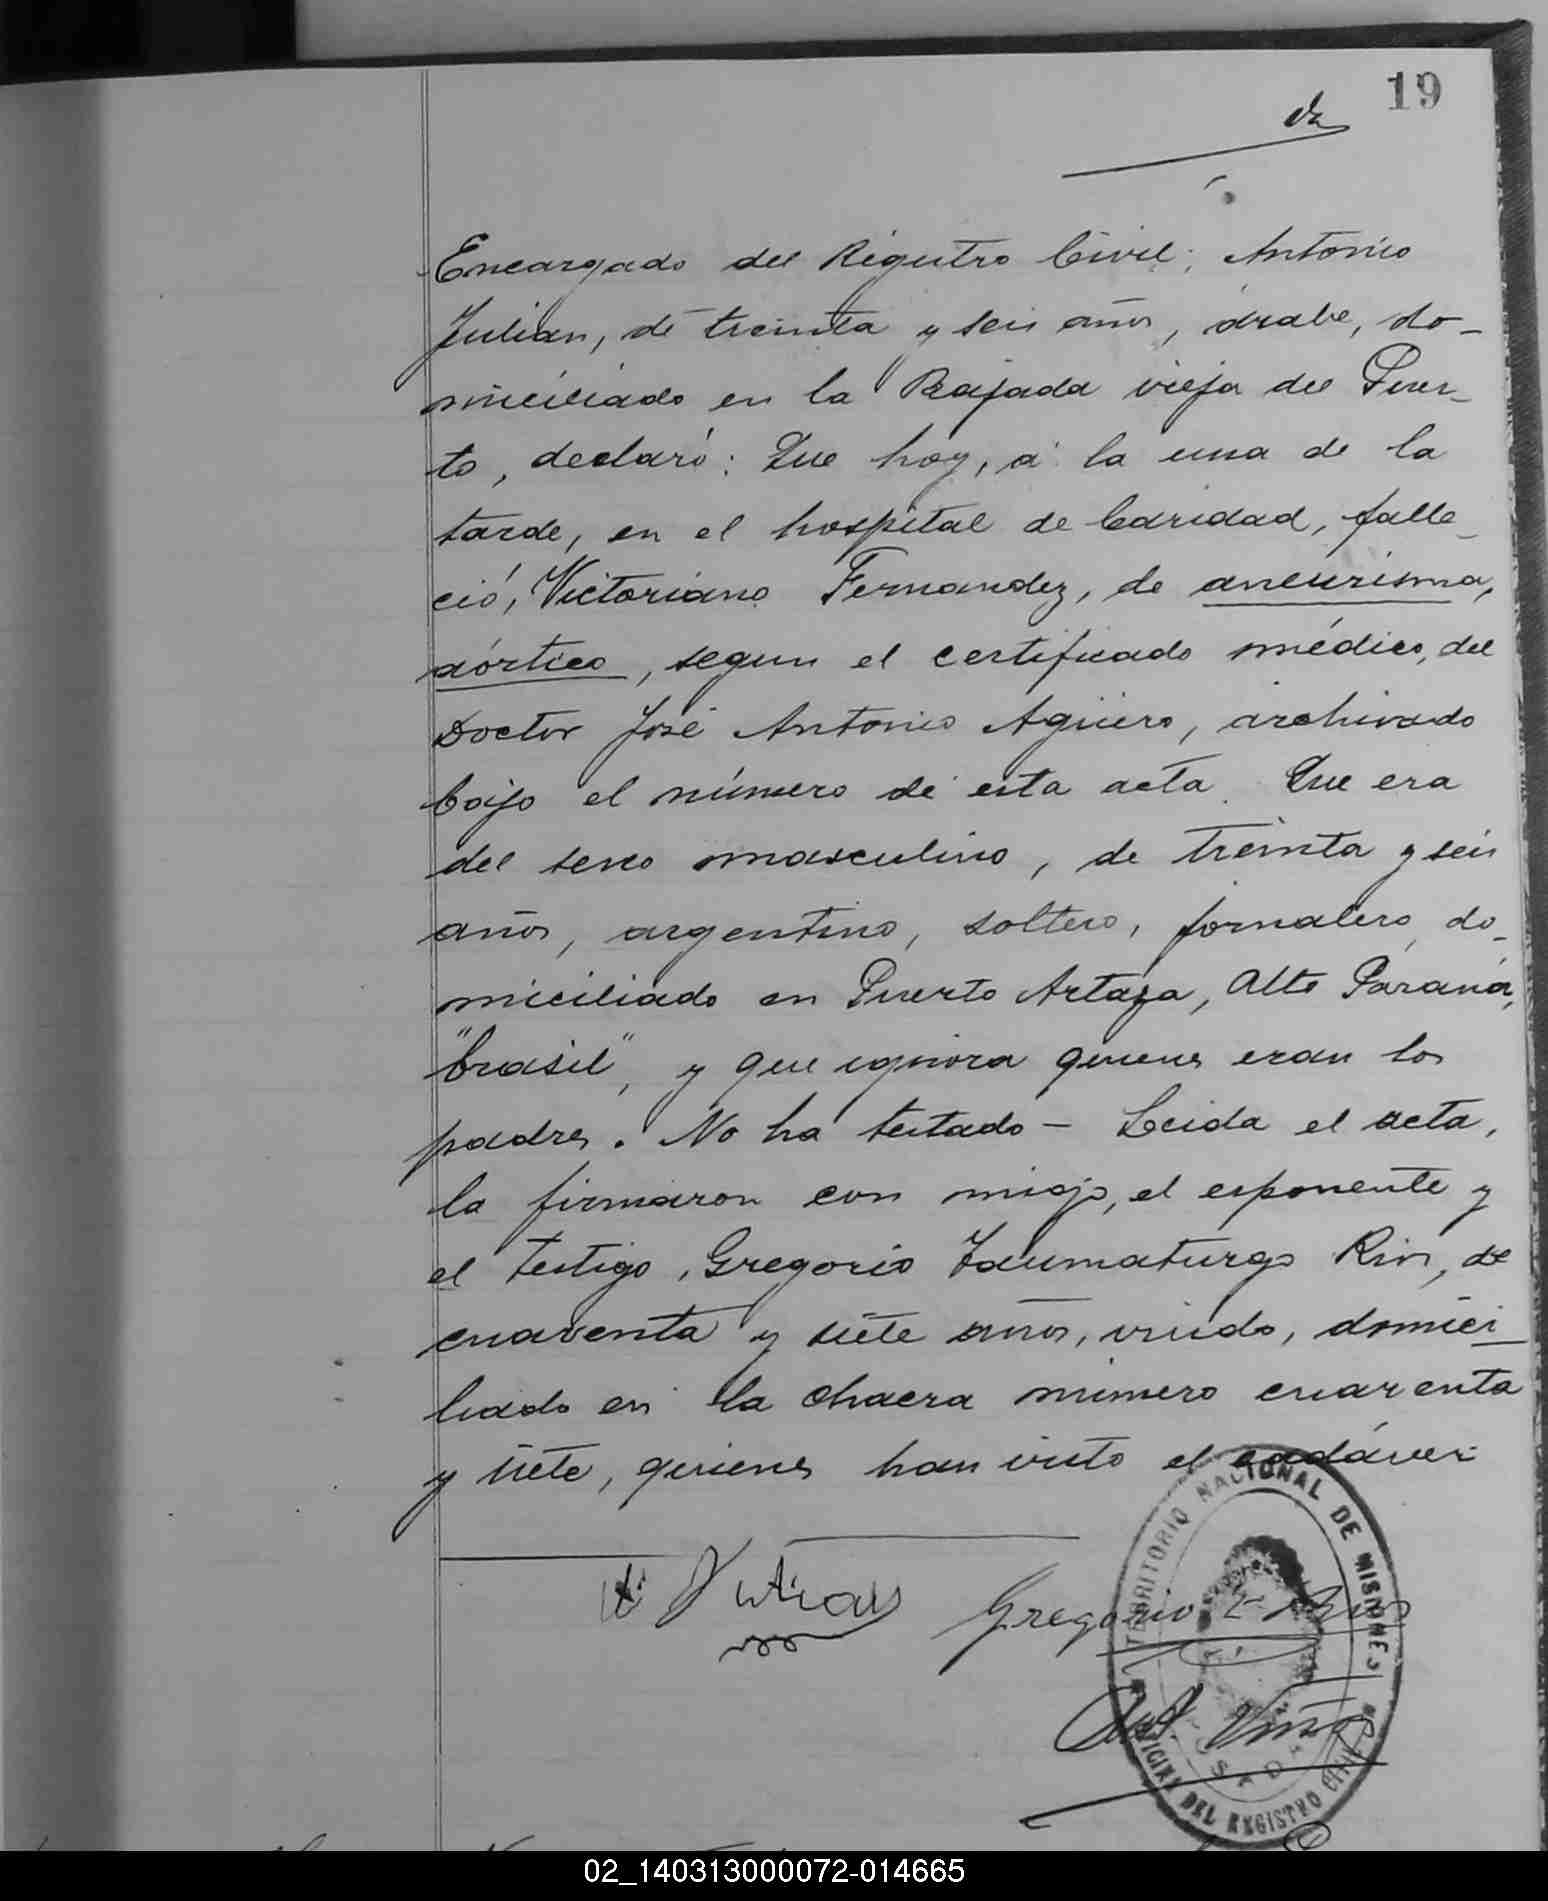 19
Encargado del Registro Civil; Antonio
Julian, de treinta y seis años, árabe, do-
miciliado en la Bajada vieja del Puer-
to, declaró: Que hoy, á la una de la
tarde, en el hospital de Caridad, falle-
ció, Victoriano Fernandez, de aneurisma,
aórtico, segun el certificado médico, del
Doctor José Antonio Agüero, archivado
bajo el número de esta acta. Que era
del sexo masculino, de treinta y seis
años, argentino, soltero, jornalero, do-
miciliado en Puerto Artaza, Alto Paraná,
"Brasil", y que ignora quienes eran los
padres. No ha testado - Leida el acta,
la firmaron con migo, el esponente y
el testigo, Gregorio Taumaturgo Rios, de
cuarenta y siete años, viudo, domici-
liado en la chacra número cuarenta
y siete, quienes han visto el cadáver
Julian
Gregorio T. Rios
TERRITORIO NACIONAL DE MISIONES
OFICINA DEL REGISTRO CIVIL
POSADAS
02_140313000072-014665